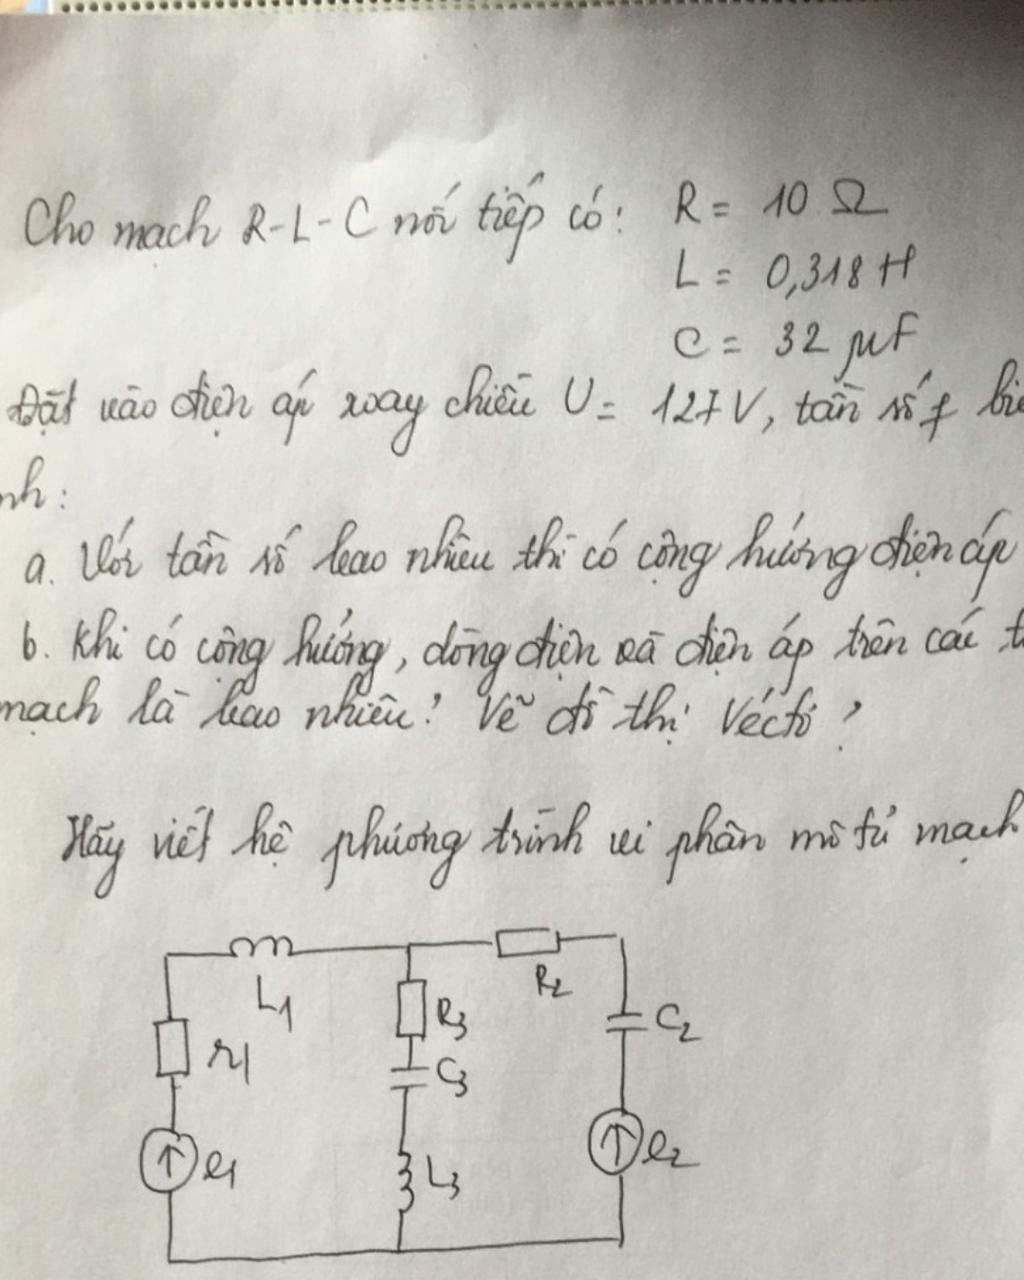 Cho mạch R-L-C nối tiếp có: R = 10 Ω
L = 0,318 H
C = 32 μF
Đặt vào điện áp xoay chiều U = 127V, tần số f
a. Với tần số bao nhiêu thì có cộng hưởng điện áp
b. Khi có cộng hưởng, dòng điện và điện áp trên các
mạch là bao nhiêu? Vẽ đồ thị véctơ?
Hãy viết hệ phương trình vi phân mô tả mạch
L1
R2
r1
R3
C3
C2
e1
L3
e2